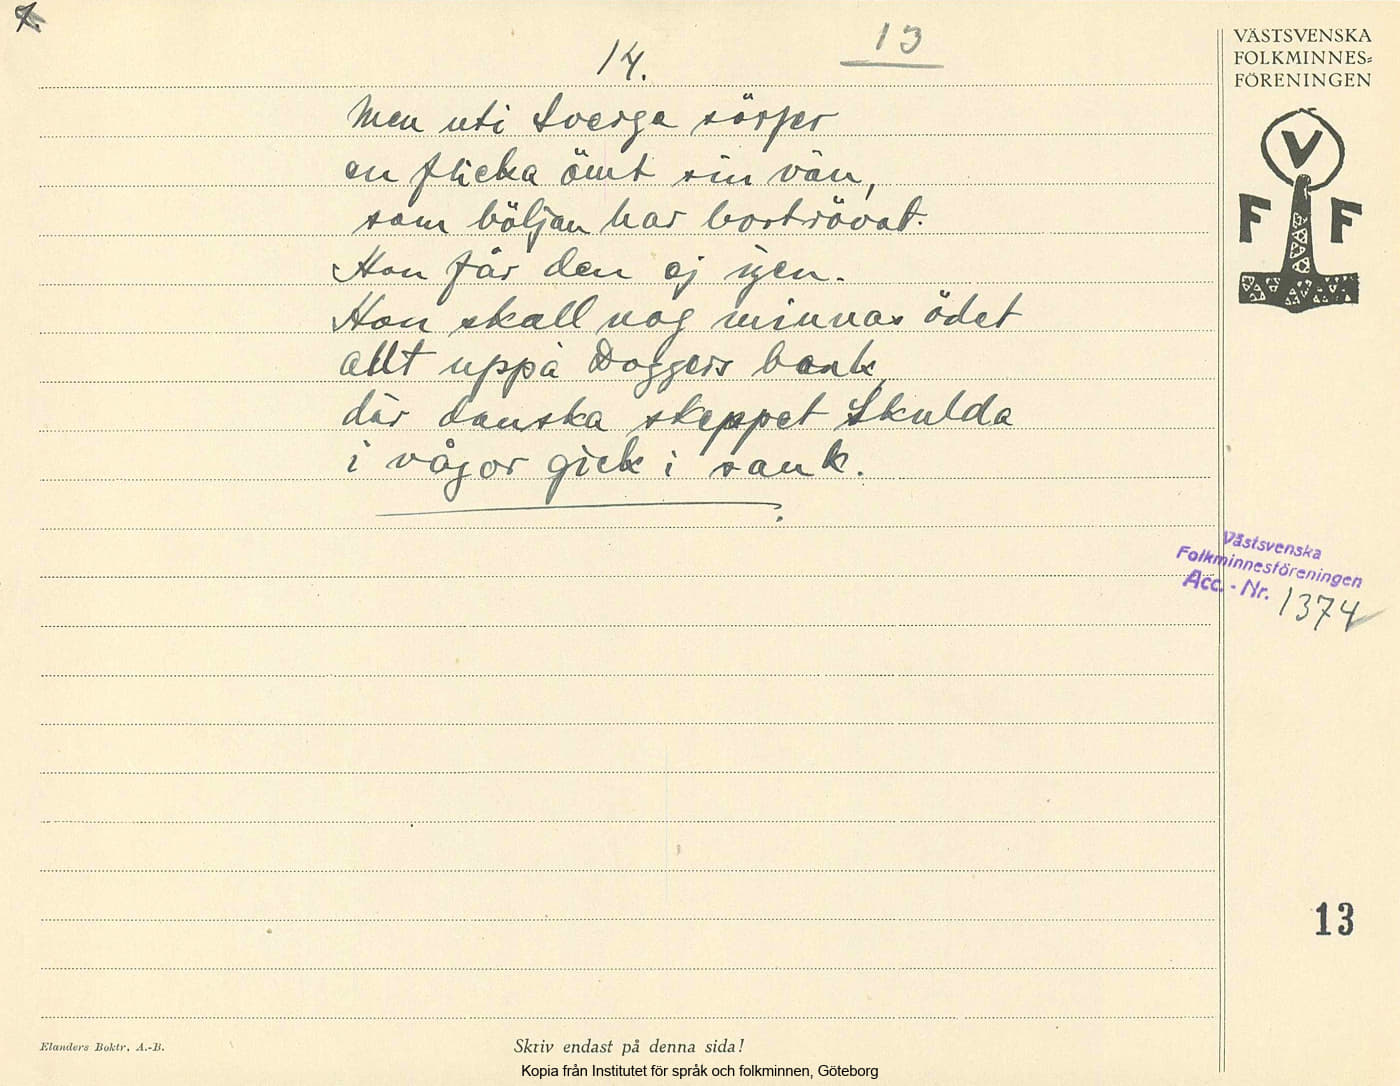 7.
13
14.
Men uti Sverge sörjer
en flicka ömt sin vän,
som böljan har bortrövat.
Hon får den ej igen.
Hon skall nog minnas ödet
allt uppå Doggers bank
där danska skeppet Skulda
i vågor gick i sank.
VÄSTSVENSKA
FOLKMINNES=
FÖRENINGEN
V
F F
Västsvenska
Folkminnesföreningen
Acc. - Nr. 1374
13
Elanders Boktr. A.-B.
Skriv endast på denna sida!
Kopia från Institutet för språk och folkminnen, Göteborg